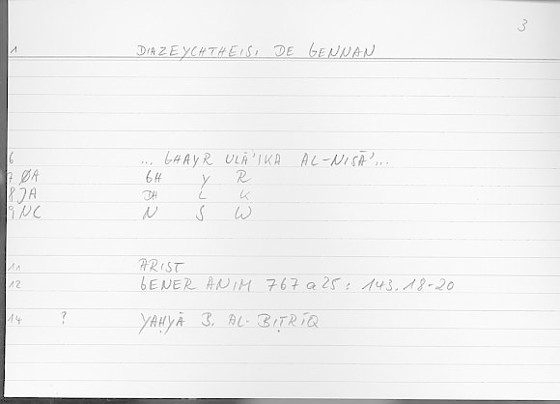 3
1 DIAZEYCHTHEISI DE GENNAN
6 ... GHAYR ULĀ'IKA AL-NISĀ' ...
7 ØA GH Y R
8 JA DA L K
9 NC N S W
11 ARIST
12 GENER ANIM 767 a 25 : 143.18-20
14 ? YAḤYĀ B. AL-BIṬRĪQ